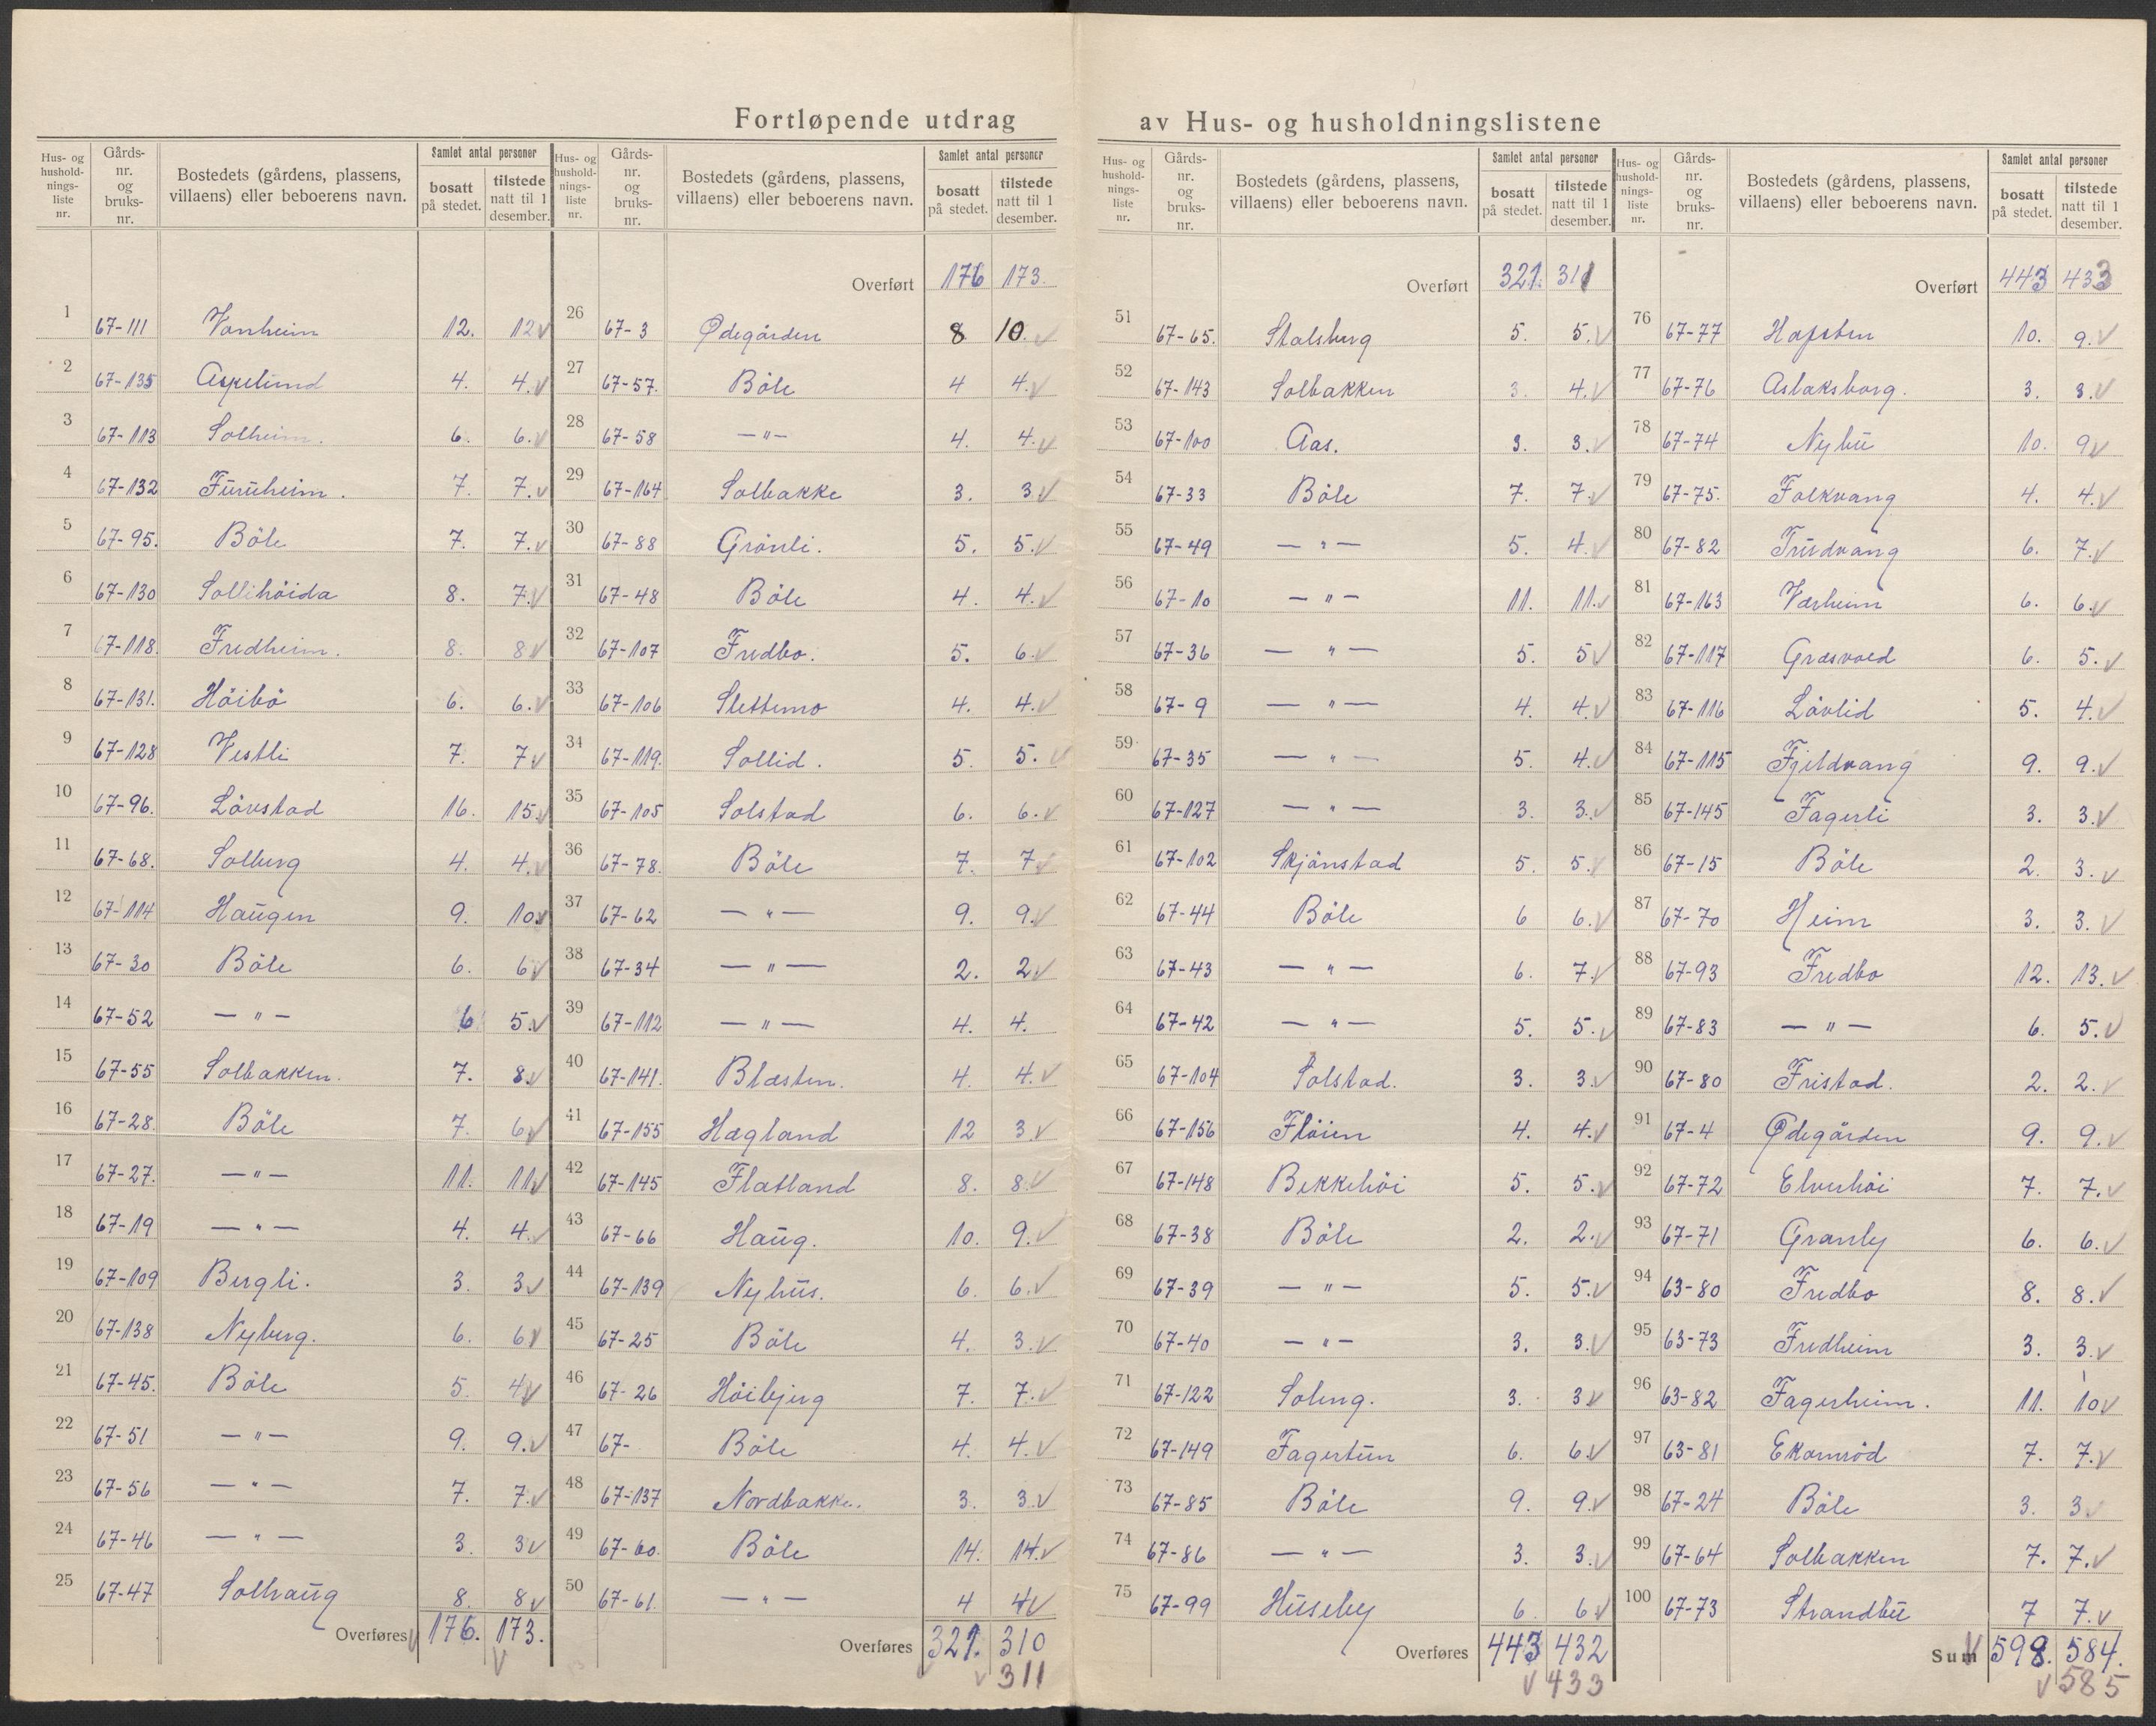 Fortløpende utdrag av Hus- og husholdningslistene
Hus- og husholdnings- liste nr. | Gårds- nr. og bruks- nr. | Bostedets (gårdens, plassens, villaens) eller beboerens navn. | Samlet antal personer | bosatt på stedet. | tilstede natt til 1 desember.
1 67-111 Vanheim 12. 12 v
2 67-135 Aspelund 4. 4. v
3 67-113 Solheim. 6. 6. v
4 67-132 Furuheim. 7. 7. v
5 67-95. Böle 7. 7. v
6 67-130 Sollihöida 8. 7. v
7 67-118. Fredheim. 8. 8 v
8 67-131. Höibö 6. 6. v
9 67-128 Vestli 7. 7 v
10 67-96. Lövstad 16. 15. v
11 67-68. Solberg 4. 4. v
12 67-114 Haugen 9. 10 v
13 67-30 Böle 6. 6 v
14 67-52 — " — 6 5. v
15 67-55 Solbakken. 7. 8. v
16 67-28. Böle 7. 6 v
17 67-27. — " — 11. 11 v
18 67-19 — " — 4. 4. v
19 67-109 Bergli. 3. 3 v
20 67-138 Nyberg. 6. 6 v
21 67-45. Böle 5. 4 v
22 67-51 — " — 9. 9. v
23 67-56 — " — 7. 7. v
24 67-46 — " — 3. 3 v
25 67-47 Solhaug 8. 8 v
Overføres v 176. 173.
v
Overført 176 173.
26 67-3 Ødegården 8 10. v
27 67-57. Böle 4 4. v
28 67-58 — " — 4. 4. v
29 67-164 Solbakke 3. 3 v
30 67-88 Grönli. 5. 5. v
31 67-48 Böle 4. 4. v
32 67-107 Fredbo. 5. 6. v
33 67-106 Slettemo 4. 4. v
34 67-119. Sollid. 5. 5. v
35 67-105 Solstad 6. 6. v
36 67-78. Böle 7. 7 v
37 67-62 — " — 9. 9. v
38 67-34 — " — 2. 2 v
39 67-112 — " — 4. 4.
40 67-141. Blæsten. 4. 4. v
41 67-155 Hægland 12 3 v
42 67-145 Flatland 8. 8 v
43 67-66 Haug. 10. 9. v
44 67-139 Nyhus. 6. 6. v
45 67-25 Böle 4. 3. v
46 67-26 Höibjerg 7. 7. v
47 67- Böle 4. 4. v
48 67-137 Nordbakke. 3. 3. v
49 67-60. Böle 14. 14. v
50 67-61. — " — 4 4 v
Overføres 321. 310
v v 311
Overført 321. 311
51 67-65. Stalsberg 5. 5. v
52 67-143 Solbakken 3. 4. v
53 67-100 Aas. 3. 3. v
54 67-33 Böle 7. 7. v
55 67-49 — " — 5. 4. v
56 67-10 — " — 11. 11. v
57 67-36 — " — 5. 5 v
58 67-9 — " — 4. 4. v
59 67-35 — " — 5. 4. v
60 67-127 — " — 3. 3. v
61 67-102 Skjönstad 5. 5. v
62 67-44 Böle 6 6. v
63 67-43 — " — 6. 7. v
64 67-42 — " — 5. 5. v
65 67-104 Solstad. 3. 3. v
66 67-156 Flöien 4. 4. v
67 67-148 Bekkehöi 5. 5. v
68 67-38 Böle 2. 2. v
69 67-39 — " — 5. 5. v
70 67-40 — " — 3. 3. v
71 67-122 Soleng. 3. 3 v
72 67-149 Fagertun 6. 6. v
73 67-85 Böle 9. 9. v
74 67-86 — " — 3. 3. v
75 67-99 Huseby 6. 6 v
Overføres 443 432
v 433
Overført 443 433
76 67-77 Hafsten 10. 9. v
77 67-76 Aslaksborg. 3. 3. v
78 67-74 Nybu 10. 9 v
79 67-75. Folkvang 4. 4. v
80 67-82 Trudvang 6. 7. v
81 67-163 Værheim 6. 6. v
82 67-117 Græsvold 6. 5. v
83 67-116 Lövlid 5. 4. v
84 67-115 Fjeldvang 9. 9. v
85 67-145 Fagerli 3. 3. v
86 67-15 Böle 2. 3. v
87 67-70 Heim 3. 3. v
88 67-93 Fredbo 12. 13. v
89 67-83 — " — 6. 5. v
90 67-80 Fristad. 2. 2. v
91 67-4 Ødegården 9. 9. v
92 67-72 Elverhöi 7. 7. v
93 67-71 Granly 6. 6. v
94 63-80 Fredbo 8. 8. v
95 63-73 Fredheim 3. 3. v
96 63-82 Fagerheim. 11. 10 v
97 63-81 Ekornröd 7. 7. v
98 67-24 Böle 3. 3. v
99 67-64 Solbakken 7. 7. v
100 67-73 Strandbu 7 7. v
Sum v 598. 584.
v 585